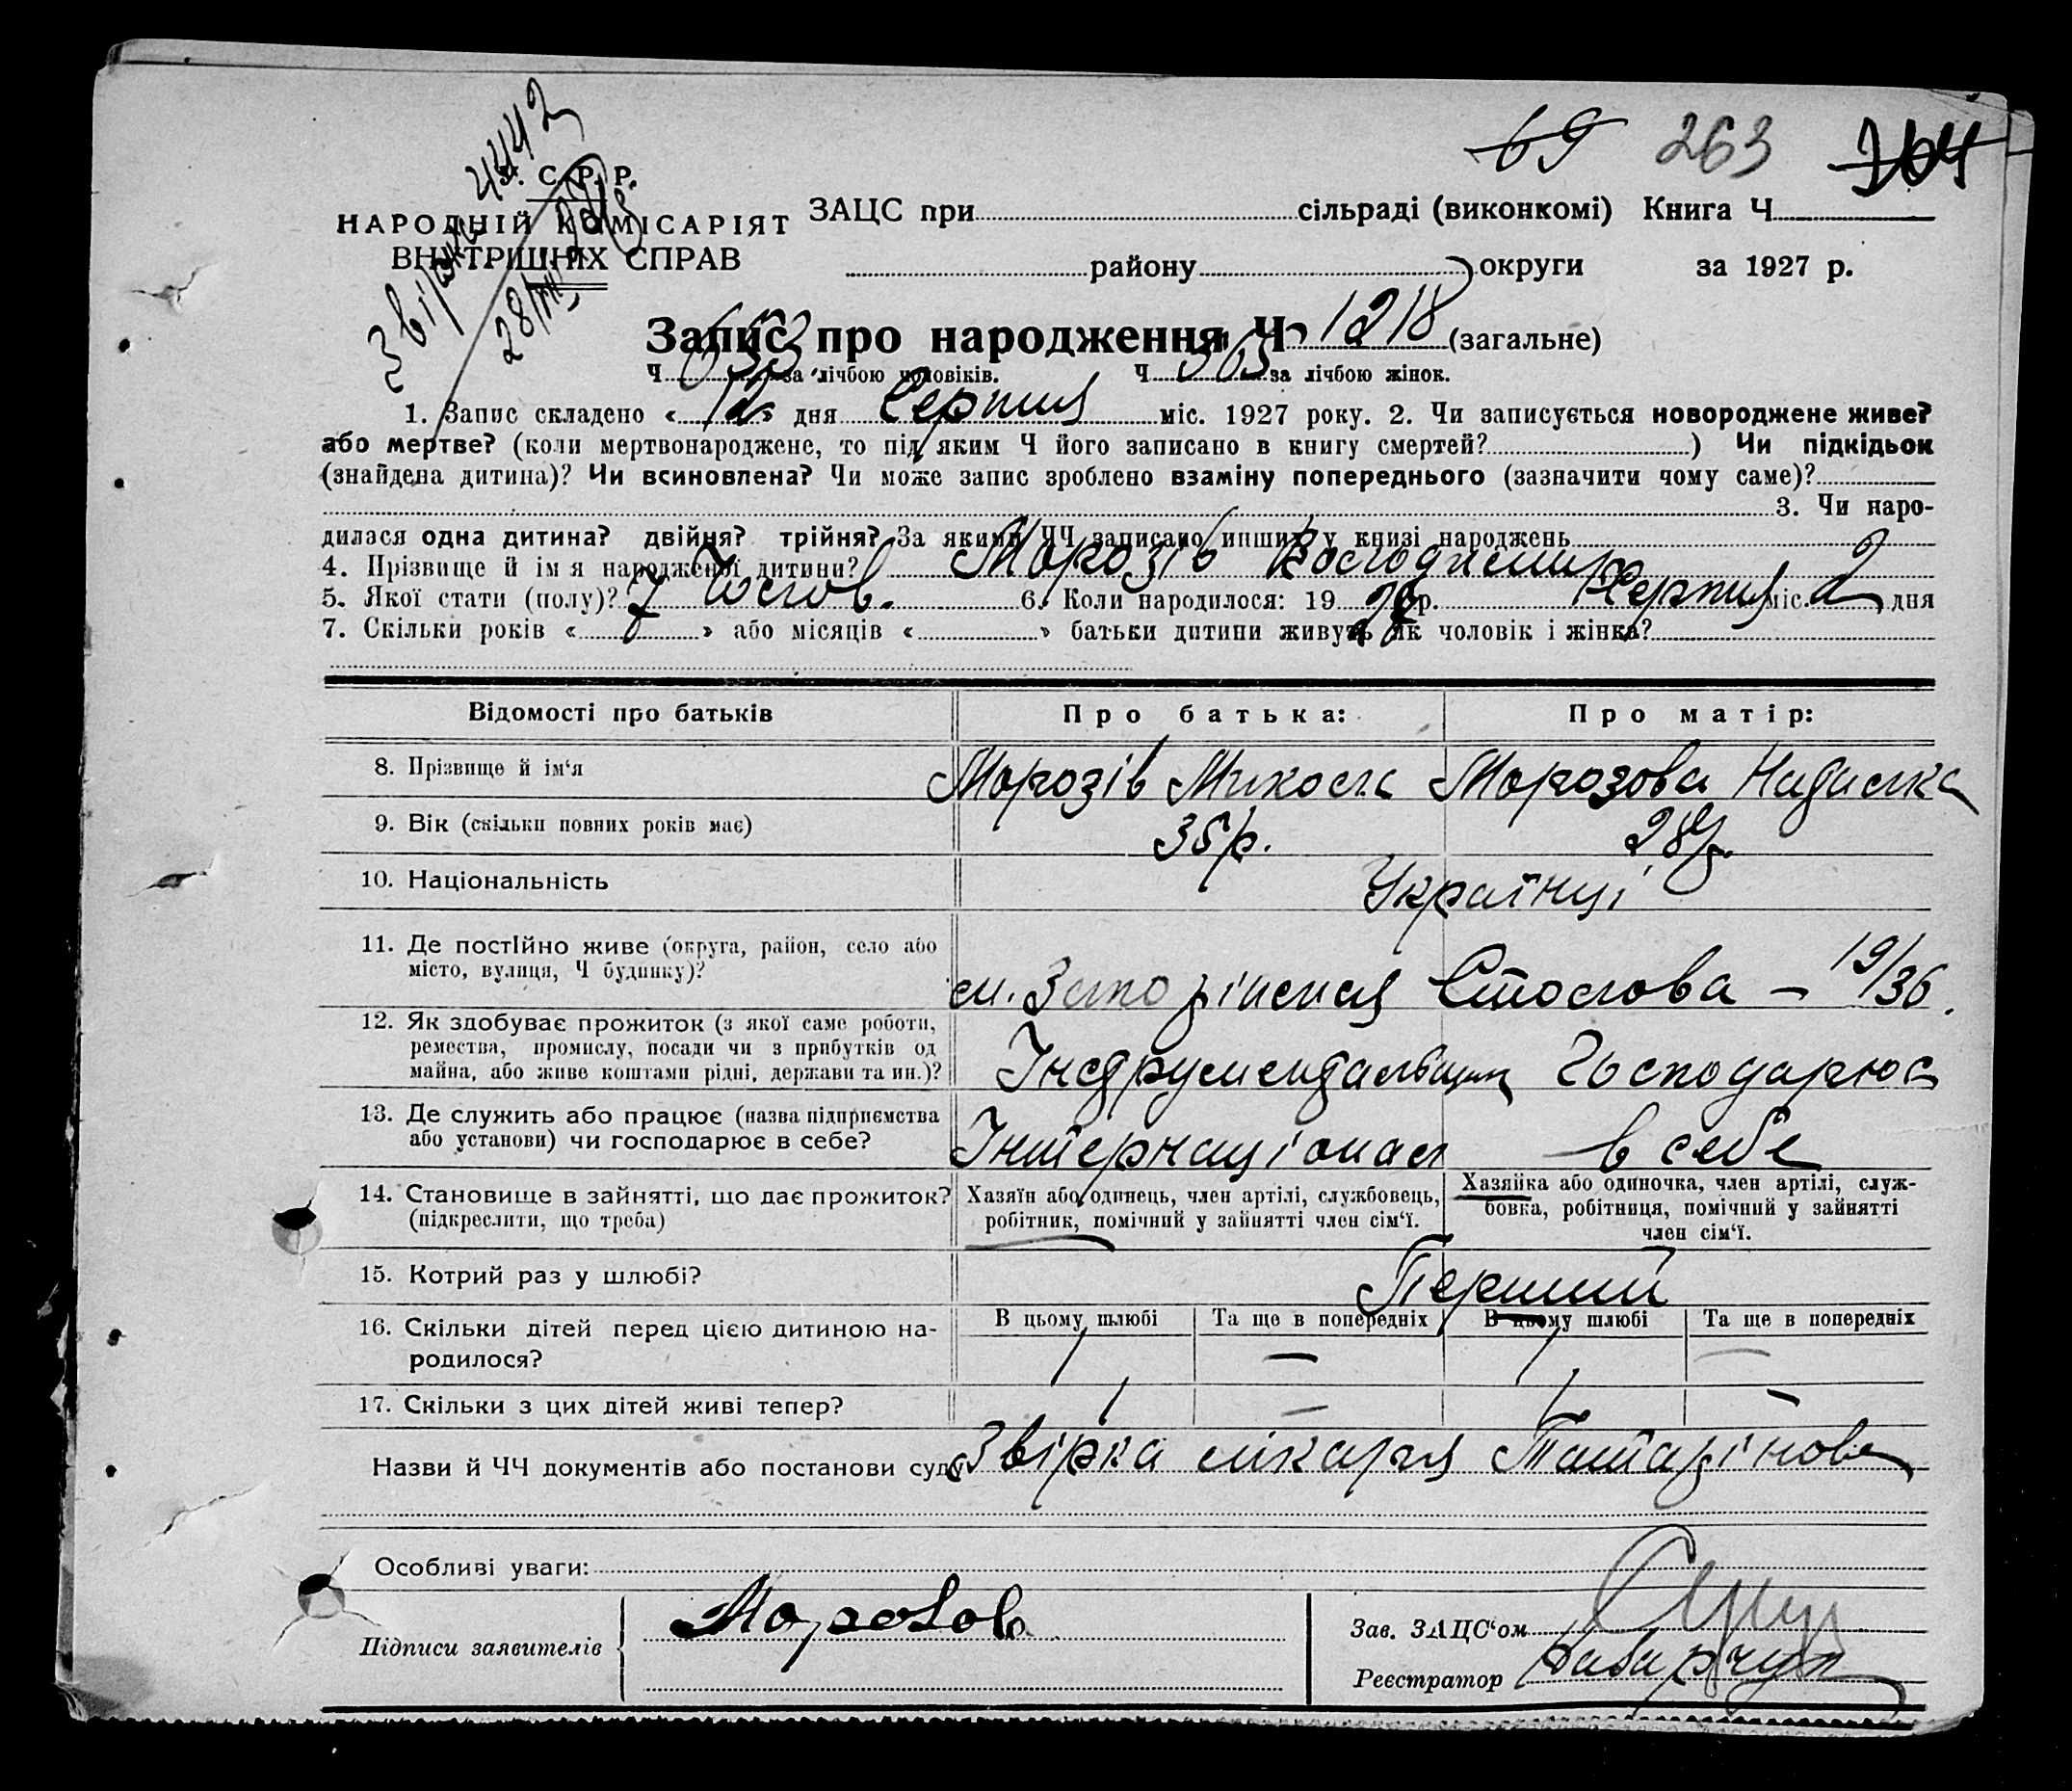 69 263 264
Звірили 4442
У. С. Р. Р.
НАРОДНІЙ КОМІСАРІЯТ
ВНУТРІШНІХ СПРАВ
28/VIII
ЗАЦС при сільраді (виконкомі) Книга Ч
району округи за 1927 р.
Запис про народження Ч 1218 (загальне)
Ч 653 за лічбою чоловіків. Ч 565 за лічбою жінок.
1. Запис складено « 12 » дня Серпня міс. 1927 року. 2. Чи записується новороджене живе?
або мертве? (коли мертвонароджене, то під яким Ч його записано в книгу смертей? ) Чи підкідьок
(знайдена дитина)? Чи всиновлена? Чи може запис зроблено взаміну попереднього (зазначити чому саме)?
3. Чи наро-
дилася одна дитина? двійня? трійня? За якими ЧЧ записано инших у книзі народжень
4. Прізвище й ім'я народженої дитини? Морозів Володимир
5. Якої стати (полу)? Чолов. 6. Коли народилося: 19 27 р. Серпня міс. 2 дня
7. Скільки років « 7 » або місяців « » батьки дитини живуть як чоловік і жінка?
Відомості про батьків Про батька: Про матір:
8. Прізвище й ім‘я Морозів Микола Морозова Надилка
9. Вік (скільки повних років має) 35 р. 28 р.
10. Національність Українці
11. Де постійно живе (округа, район, село або
місто, вулиця, Ч будинку)? м. Запоріжжя Столова – 19/36.
12. Як здобуває прожиток (з якої саме роботи,
ремества, промислу, посади чи з прибутків од
майна, або живе коштами рідні, держави та ин.)? Інструментальщик Господарює
13. Де служить або працює (назва підприємства
або установи) чи господарює в себе? Інтернаціонал в себе
14. Становище в зайнятті, що дає прожиток?
(підкреслити, що треба)
Хазяїн або одинець, член артілі, службовець,
робітник, помічний у зайнятті член сім‘ї.
Хазяйка або одиночка, член артілі, служ-
бовка, робітниця, помічний у зайнятті
член сім‘ї.
15. Котрий раз у шлюбі? Перший
16. Скільки дітей перед цією дитиною на-
родилося?
В цьому шлюбі Та ще в попередніх В цьому шлюбі Та ще в попередніх
1 — 1 —
17. Скільки з цих дітей живі тепер? 1 — 1 —
Назви й ЧЧ документів або постанови суду Звірка лікаря Татарінова
Особливі уваги:
Підписи заявителів Морозов
Зав. ЗАЦС‘ом
Реєстратор